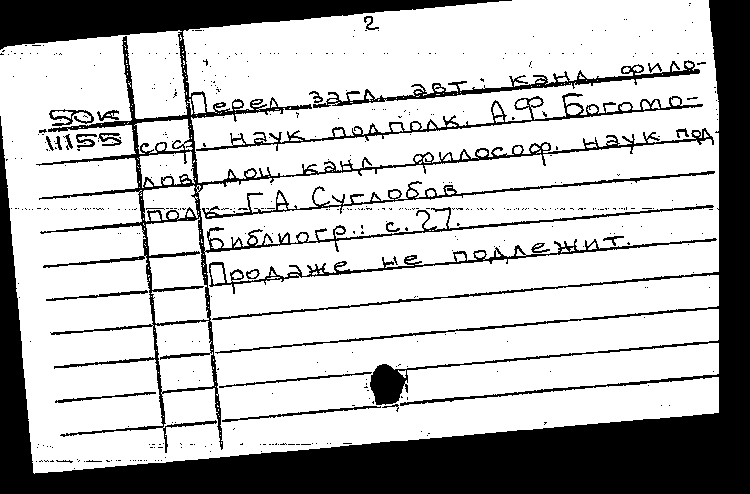 2
Перед загл. авт.: канд. фило-
50К
11155
соф. наук подполк. А.Ф. Богомо-
лов, доц. канд. философ. наук под-
полк Г.А. Суглобов
Библиогр.: с. 27.
Продаже не подлежит.